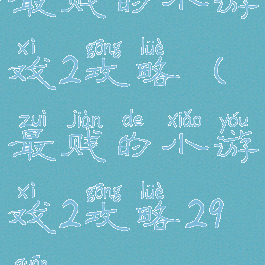 最贱的小游
xì gōng lüè
戏2攻略(
zuì jiàn de xiǎo yóu
最贱的小游
xì gōng lüè
戏2攻略29